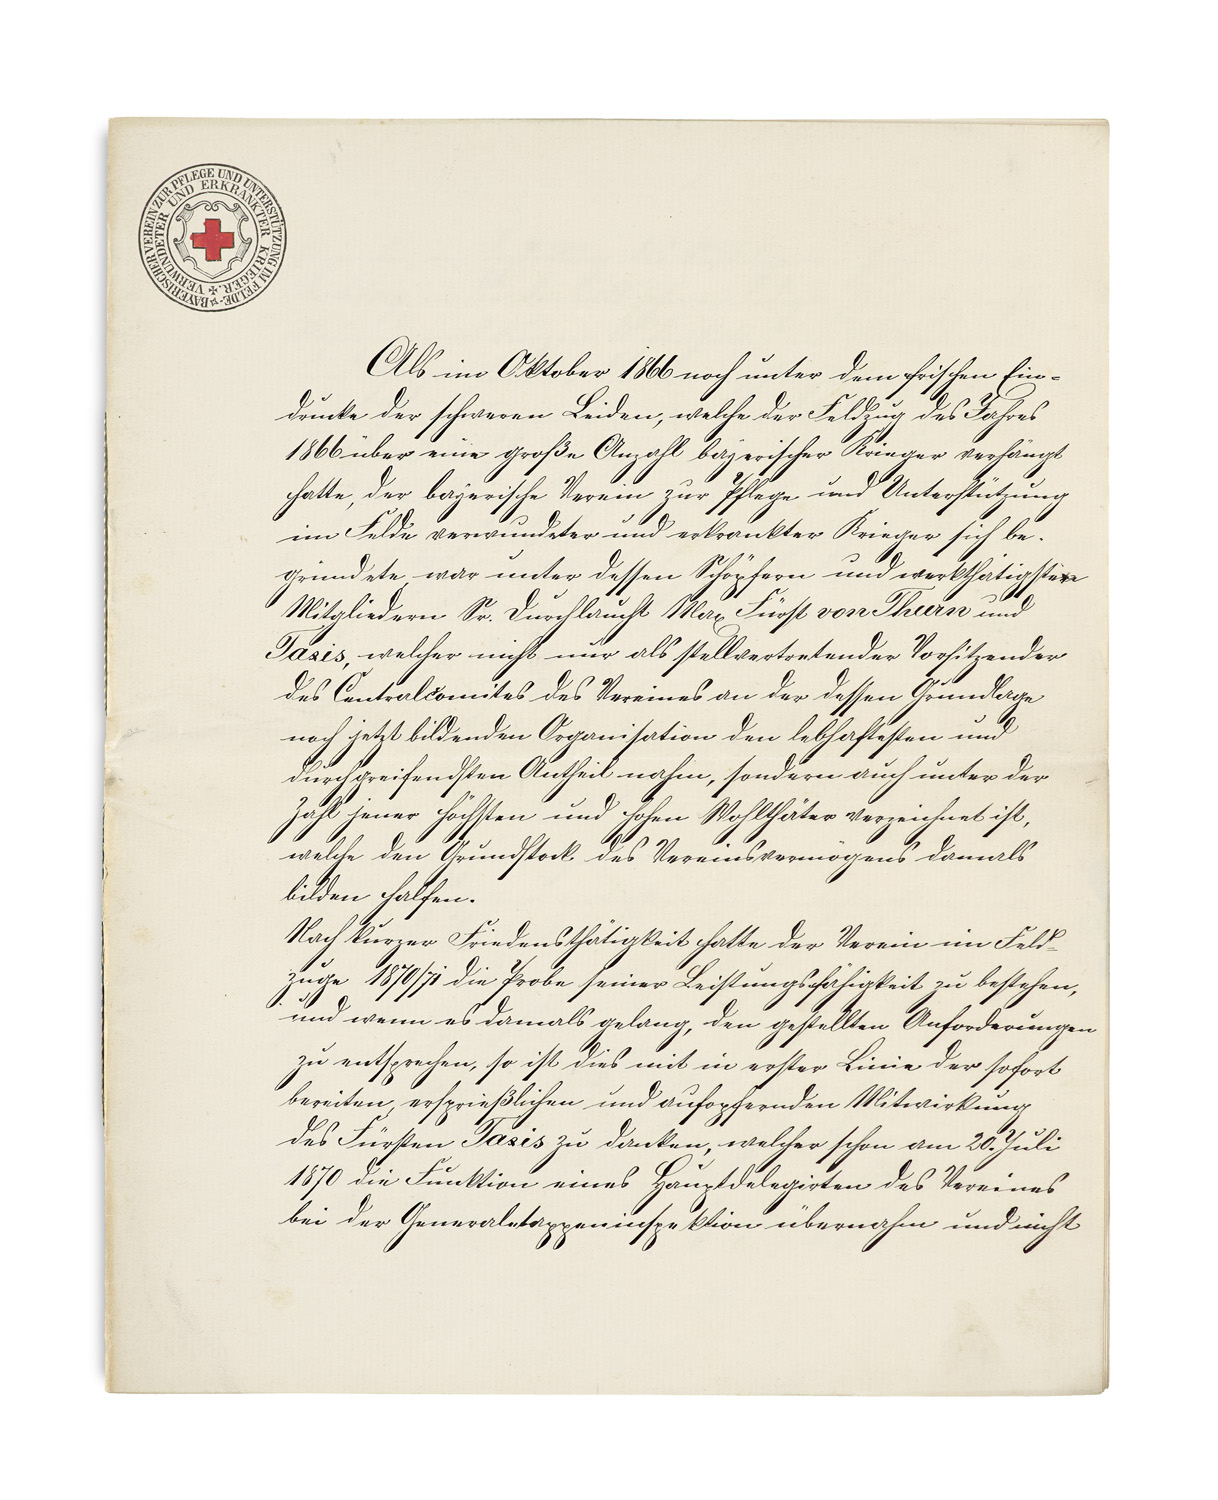 BAYERISCHER VEREIN ZUR PFLEGE UND UNTERSTÜTZUNG IM FELDE
VERWUNDETER UND ERKRANKTER KRIEGER.
Als im Oktober 1866 noch unter dem frischen Ein-
drucke der schweren Leiden, welche der Feldzug des Jahres
1866 über eine große Anzahl bayerischer Krieger verhängt
hatte, der bayerische Verein zur Pflege und Unterstützung
im Felde verwundeter und erkrankter Krieger sich be-
gründete, war unter dessen Schöpfern und werkthätigsten
Mitgliedern Sr. Durchlaucht Max Fürst von Thurn und
Taxis, welcher nicht nur als stellvertretender Vorsitzender
des Centralcomites des Vereines an der dessen Grundlage
noch jetzt bildenden Organisation den lebhaftesten und
durchgreifendsten Antheil nahm, sondern auch unter der
Zahl jener höchsten und hohen Wohlthäter verzeichnet ist,
welche den Grundstock des Vereinsvermögens damals
bilden halfen.
Nach kurzer Friedensthätigkeit hatte der Verein im Feld-
zuge 1870/71 die Probe seiner Leistungsfähigkeit zu bestehen,
und wenn es damals gelang, den gestellten Anforderungen
zu entsprechen, so ist dies mit in erster Linie der sofort
bereiten, ersprießlichen und aufopfernden Mitwirkung
des Fürsten Taxis zu danken, welcher schon am 20. Juli
1870 die Funktion eines Hauptdelegirten des Vereines
bei der Generaletappeninspektion übernahm und nicht